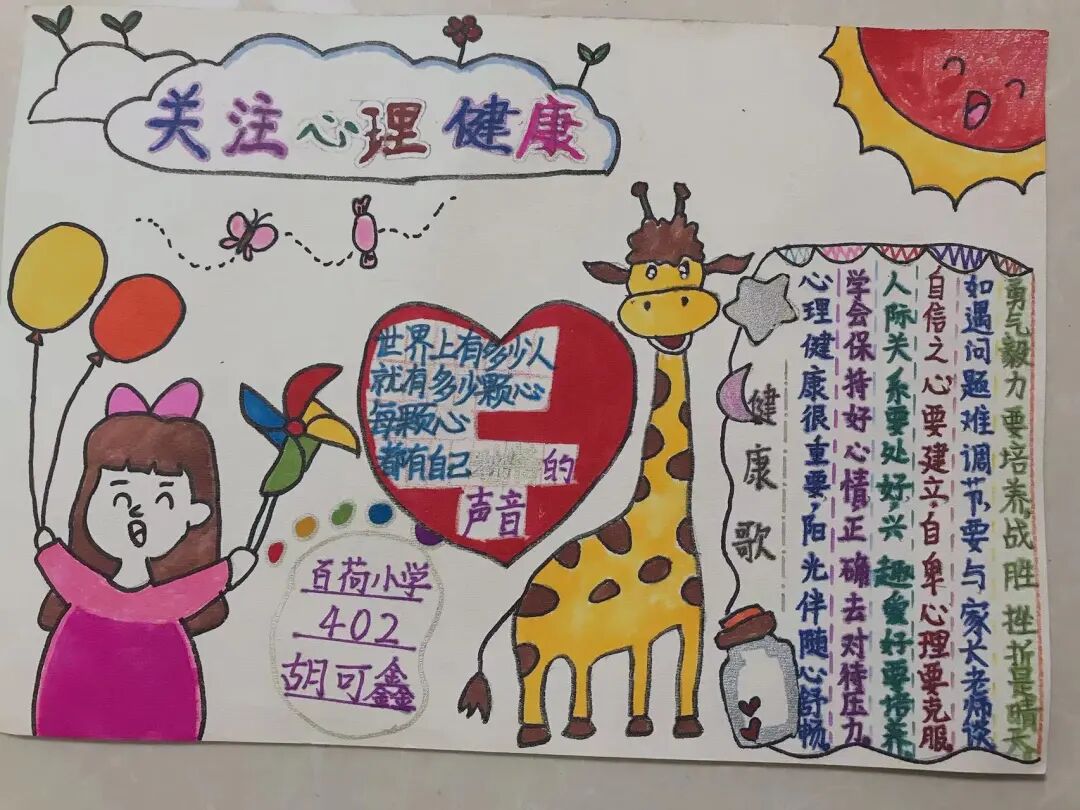 关注心理健康
世界上有多少人
就有多少颗心
每颗心
都有自己的
声音
百荷小学
402
胡可鑫
健康歌
心理健康很重要,阳光伴随心舒畅
学会保持好心情,正确去对待压力
人际关系要处好,兴趣爱好要培养
自信之心要建立,自卑心理要克服
如遇问题难调节,要与家长老师谈
勇气毅力要培养,战胜挫折是晴天